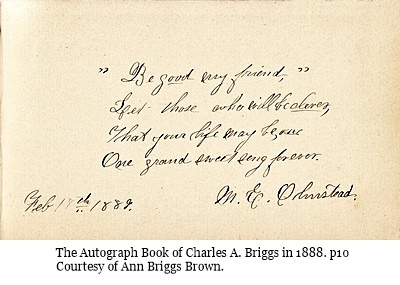 " Be good my friend, "
Let those who will be clever,
That your life may be one
One grand sweet song forever.
M. E. Olmstead.
Feb. 1888.
The Autograph Book of Charles A. Briggs in 1888. p10
Courtesy of Ann Briggs Brown.